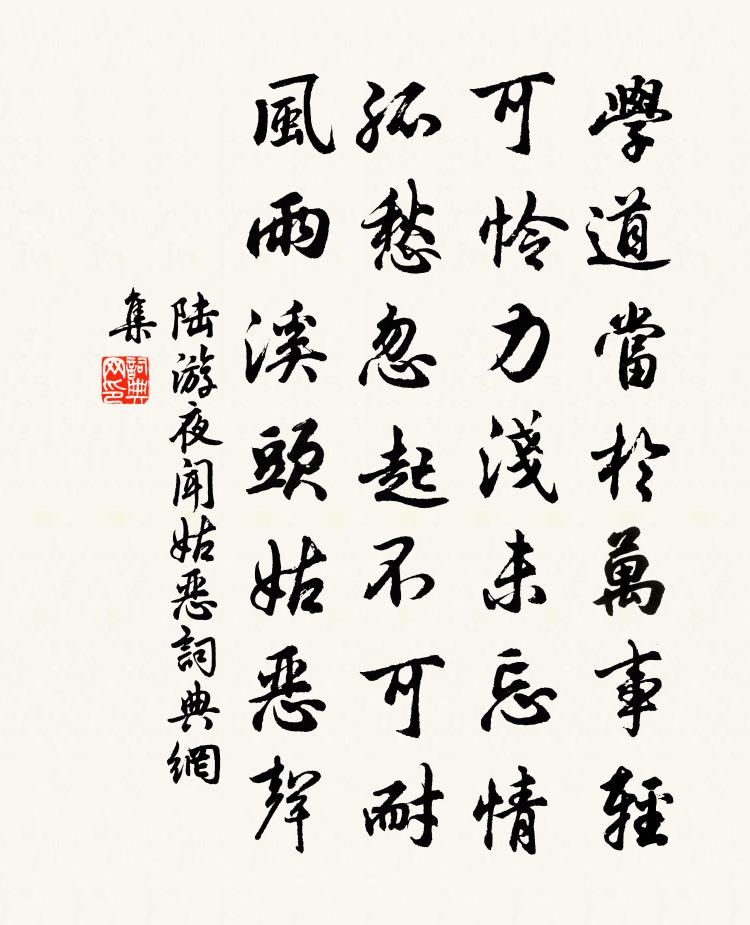 學道當於萬事輕
可怜力淺未忘情
孤愁忽起不可耐
風雨溪頭姑惡聲
陆游夜闻姑恶詞典網
集
詞典
网印